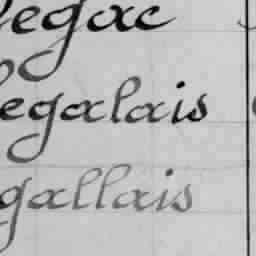 legac
legalais
gallais